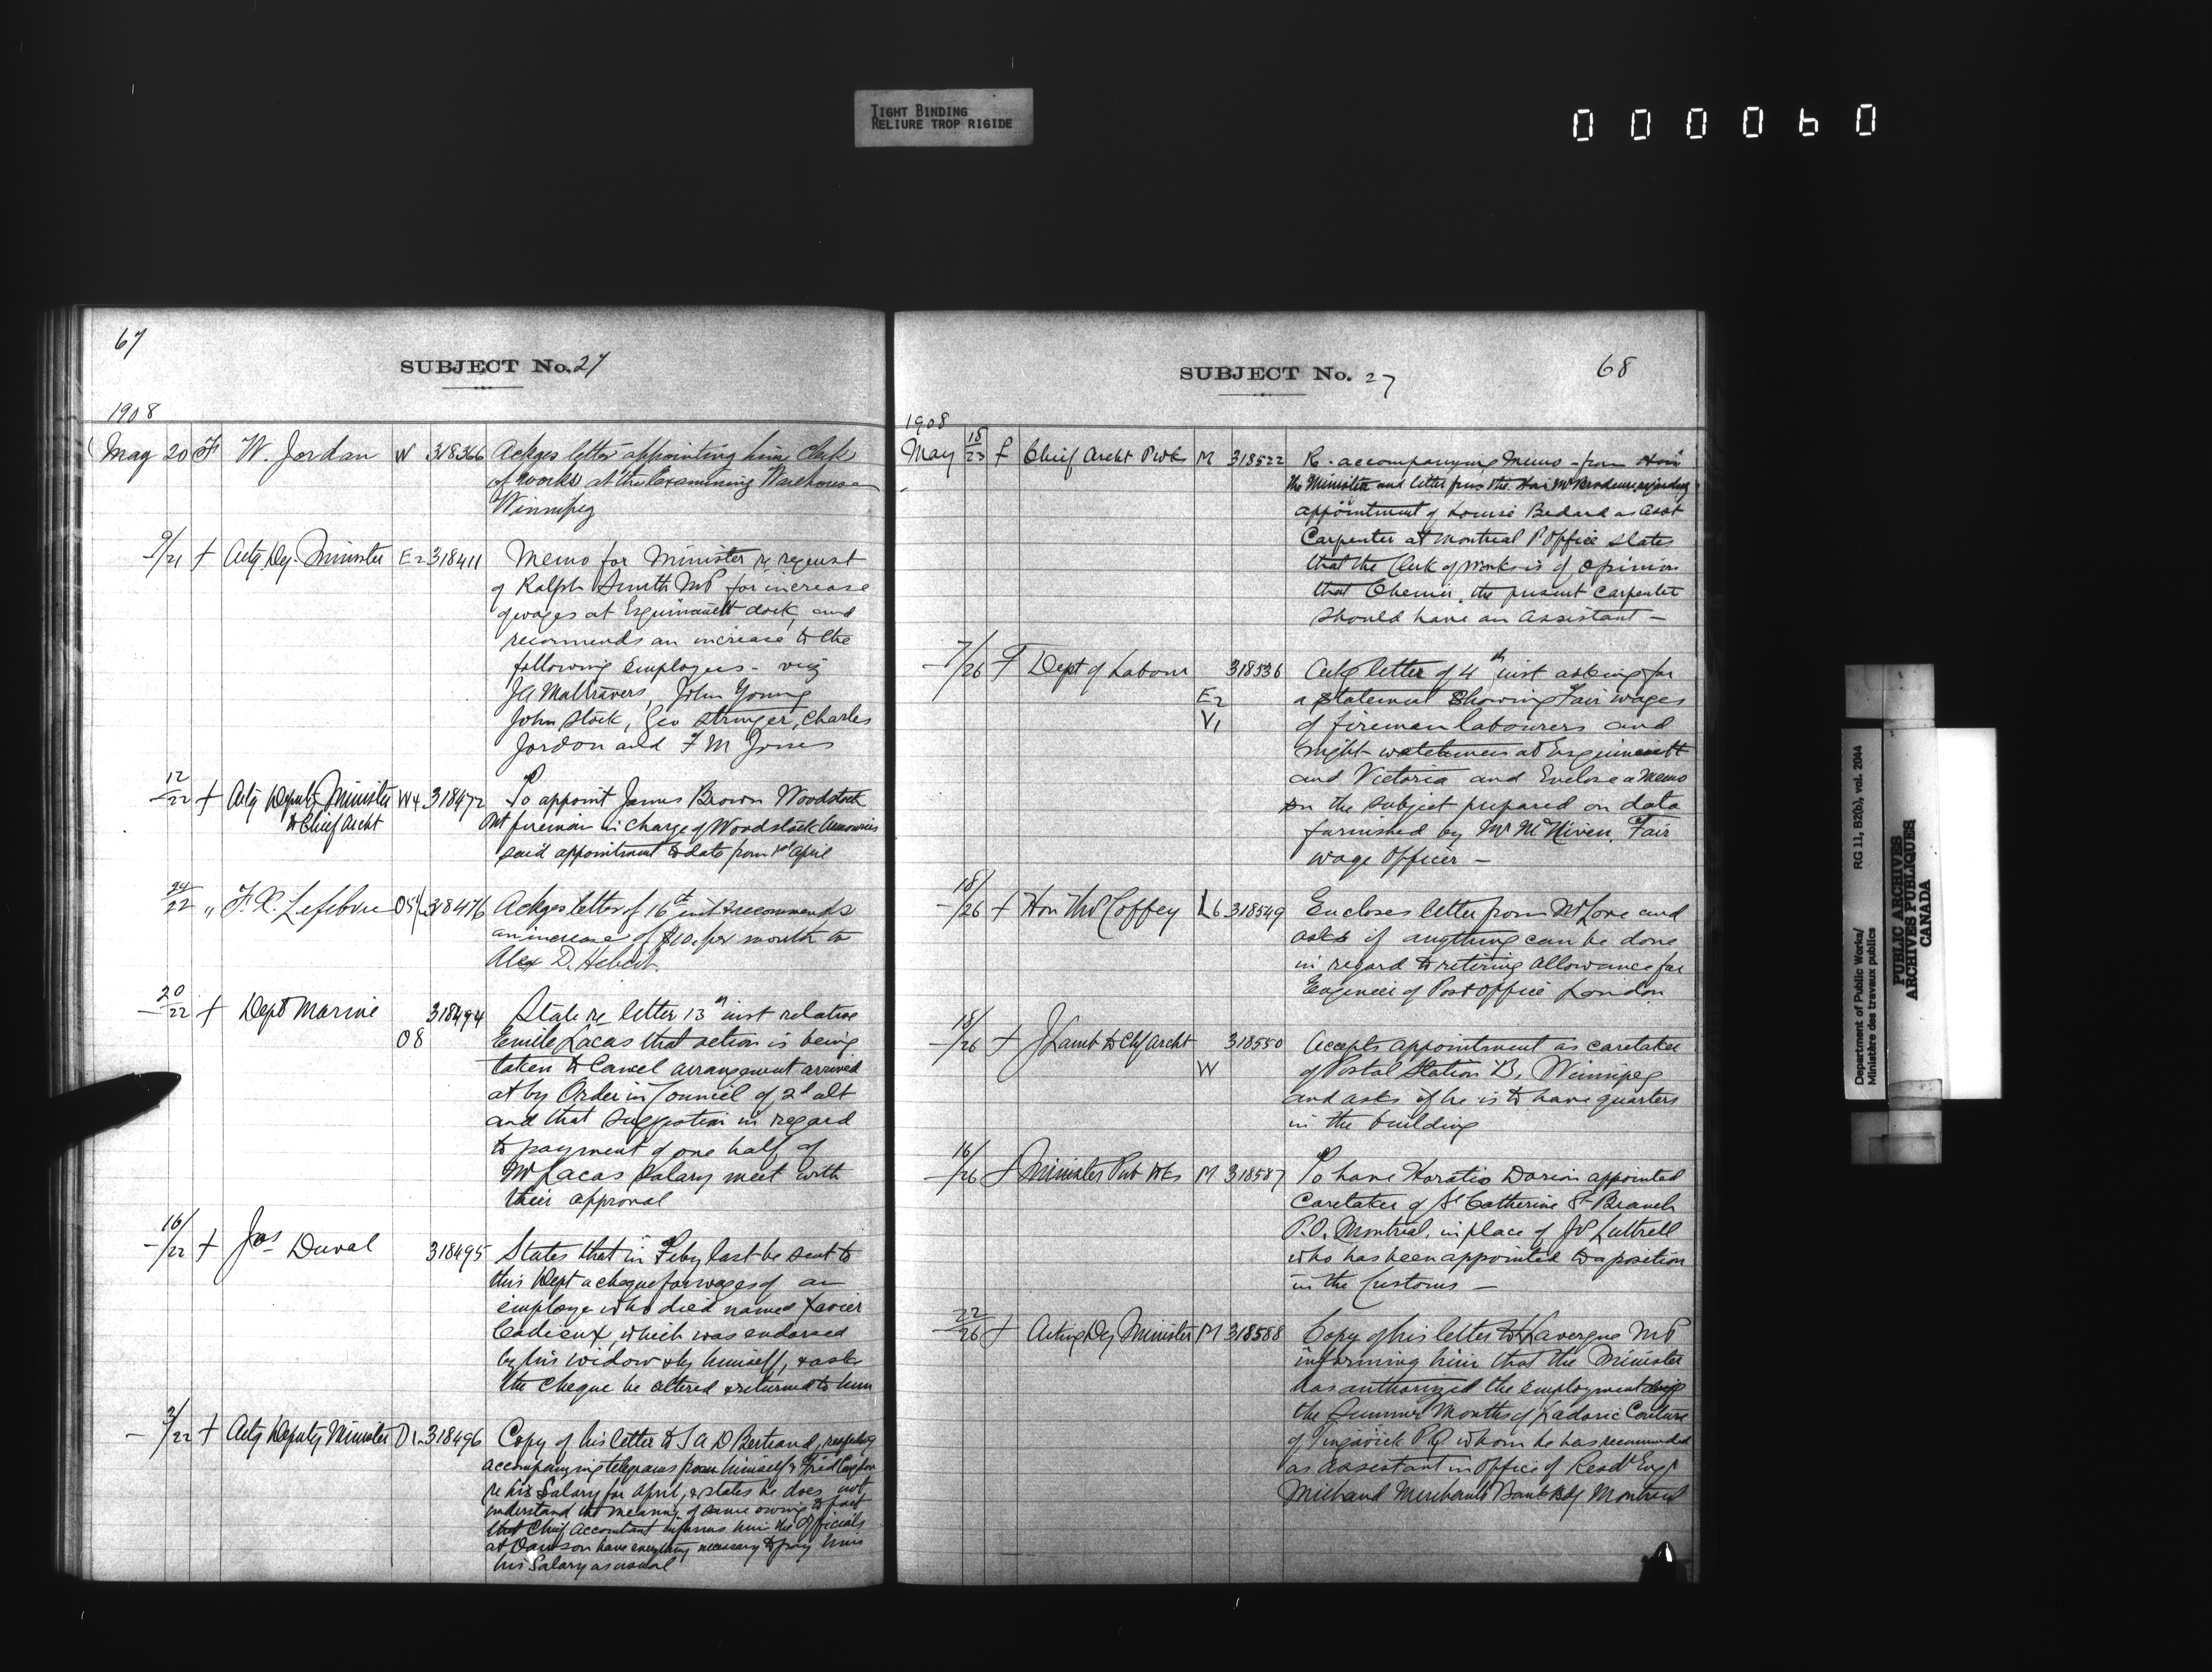 TIGHT BINDING
RELIURE TROP RIGIDE
000060
67
SUBJECT No. 27
1908
May 20 F W. Jordan W 318366 Ackges letter appointing him Clerk
of works at the Examining Warehouse
Winnipeg
9/21 f Actg Dy. Minister E2 318411 Memo for Minister re request
of Ralph Smith MP for increase
of wages at Esquimault dock, and
recommends an increase to the
following Employees - viz
JA Maltravers, John Young
John Stock, Geo Stringer, Charles
Jordon and F M Jones
12/22 f Actg Deputy Minister W4 318472 To appoint James Brown Woodstock
to Chief Archt
Ont fireman in charge of Woodstock Armouries
said appointment to date from 1st April
24/22 " F. X. Lefebvre 318476 Ackges letter of 16th inst & recommends
an increase of $10. per month to
Alex D. Hebert.
20/22 f Dept Marine 318494 State re letter 13th inst relative
08 Emile Lacas that action is being
taken to Cancel arrangement arrived
at by Order in Council of 2d ult
and that suggestion in regard
to payment of one half of
Mr Lacas Salary meet with
their approval
16/22 f Jas Duval 318495 States that in Feby last he sent to
this Dept a cheque for wages of an
employe who died named Xavier
Cadieux, which was endorsed
by his widow & by himself, & asks
the cheque be altered & returned to him
3/22 f Actg Deputy Minister D1 318496 Copy of his letter to J A D Bertrand, respecting
accompanying telegrams from himself &
re his Salary for April, & states he does not
understand the meaning of same owing to fact
that Chief Accountant informs him the Officials
at Dawson have everything necessary to pay him
his Salary as usual
SUBJECT No. 27
68
1908
May 18/23 f Chief Archt PWks M 318522 R. accompanying Memo - from Hon
the Minister and letter from the Hon Mr Brodeur regarding
appointment of Louis Bedard as Asst
Carpenter at Montreal P Office States
that the Clerk of Works is of opinion
that Chenier, the present Carpenter
should have an Assistant -
7/26 f Dept of Labour 318536 Ackg letter of 4th inst asking for
E2 a statement Showing Fair wages
V1 of fireman labourers and
night watchmen at Esquimault
and Victoria and Enclose a Memo
on the subject prepared on data
furnished by Mr McNiven, Fair
wage Officer -
18/26 f Hon Thos Coffey L6 318549 Encloses letter from Mr Love and
asks if anything can be done
in regard to retiring allowance for
Engineer of Post Office London
18/26 f J Lamb to Chf Archt 318550 Accepts appointment as caretaker
W of Postal Station B, Winnipeg
and asks if he is to have quarters
in the building
16/26 f Minister Pub Wks M 318587 To have Horatio Dorion appointed
Caretaker of St Catherine St Branch
P.O. Montreal, in place of JP Luttrell
who has been appointed to a position
in the Customs -
22/26 f Acting Dy Minister M 318588 Copy of his letter to Lavergne MP
informing him that the Minister
has authorized the employment durg
the Summer Months of Ladoric Couture
of Tingwick P.Q. whom he has recommended
as assistant in Office of Resdt Engr
Michaud Merchants Bank Bdg Montreal
Department of Public Works/
Ministère des travaux publics
RG 11, B2(b), vol. 2044
PUBLIC ARCHIVES
ARCHIVES PUBLIQUES
CANADA